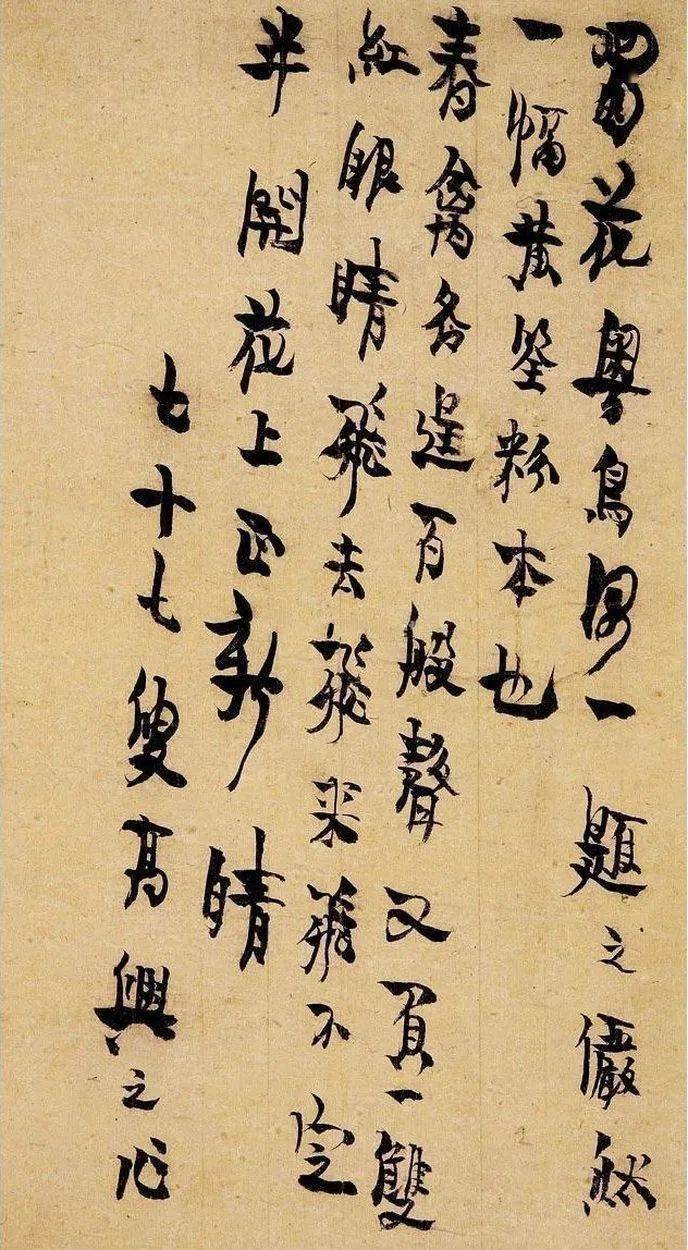 蜀花粵鳥一題之儼然
一幅黃筌粉本也
春禽各逞百般聲又買一雙
紅眼睛飛去飛來飛不定
半開花上正新晴
七十七叟高興之作